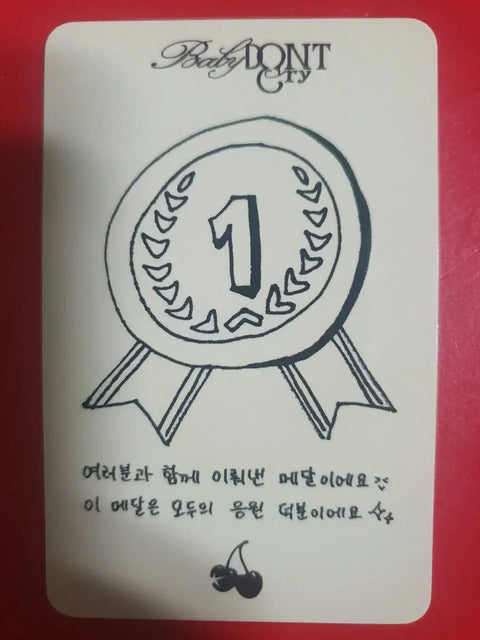 Baby DONT
Cry
1
여러분과 함께 이뤄낸 메달이에요
이 메달은 모두의 응원 덕분이에요